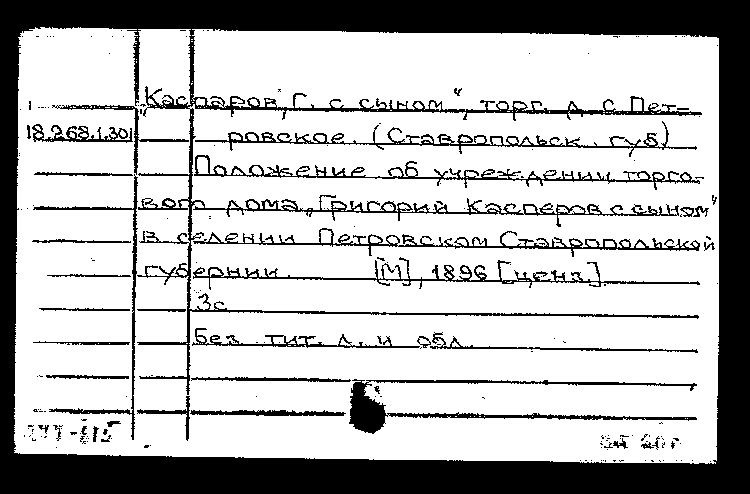 „Каспаров, Г. с сыном", торг. д. с Пет=
18.268.1.301
ровское. (Ставропольск. губ)
Положение об учреждении торго-
вого дома „Григорий Каспаров с сыном"
в селении Петровском Ставропольской
губернии. [М], 1896 [ценз.]
3с
Без тит. л. и обл.